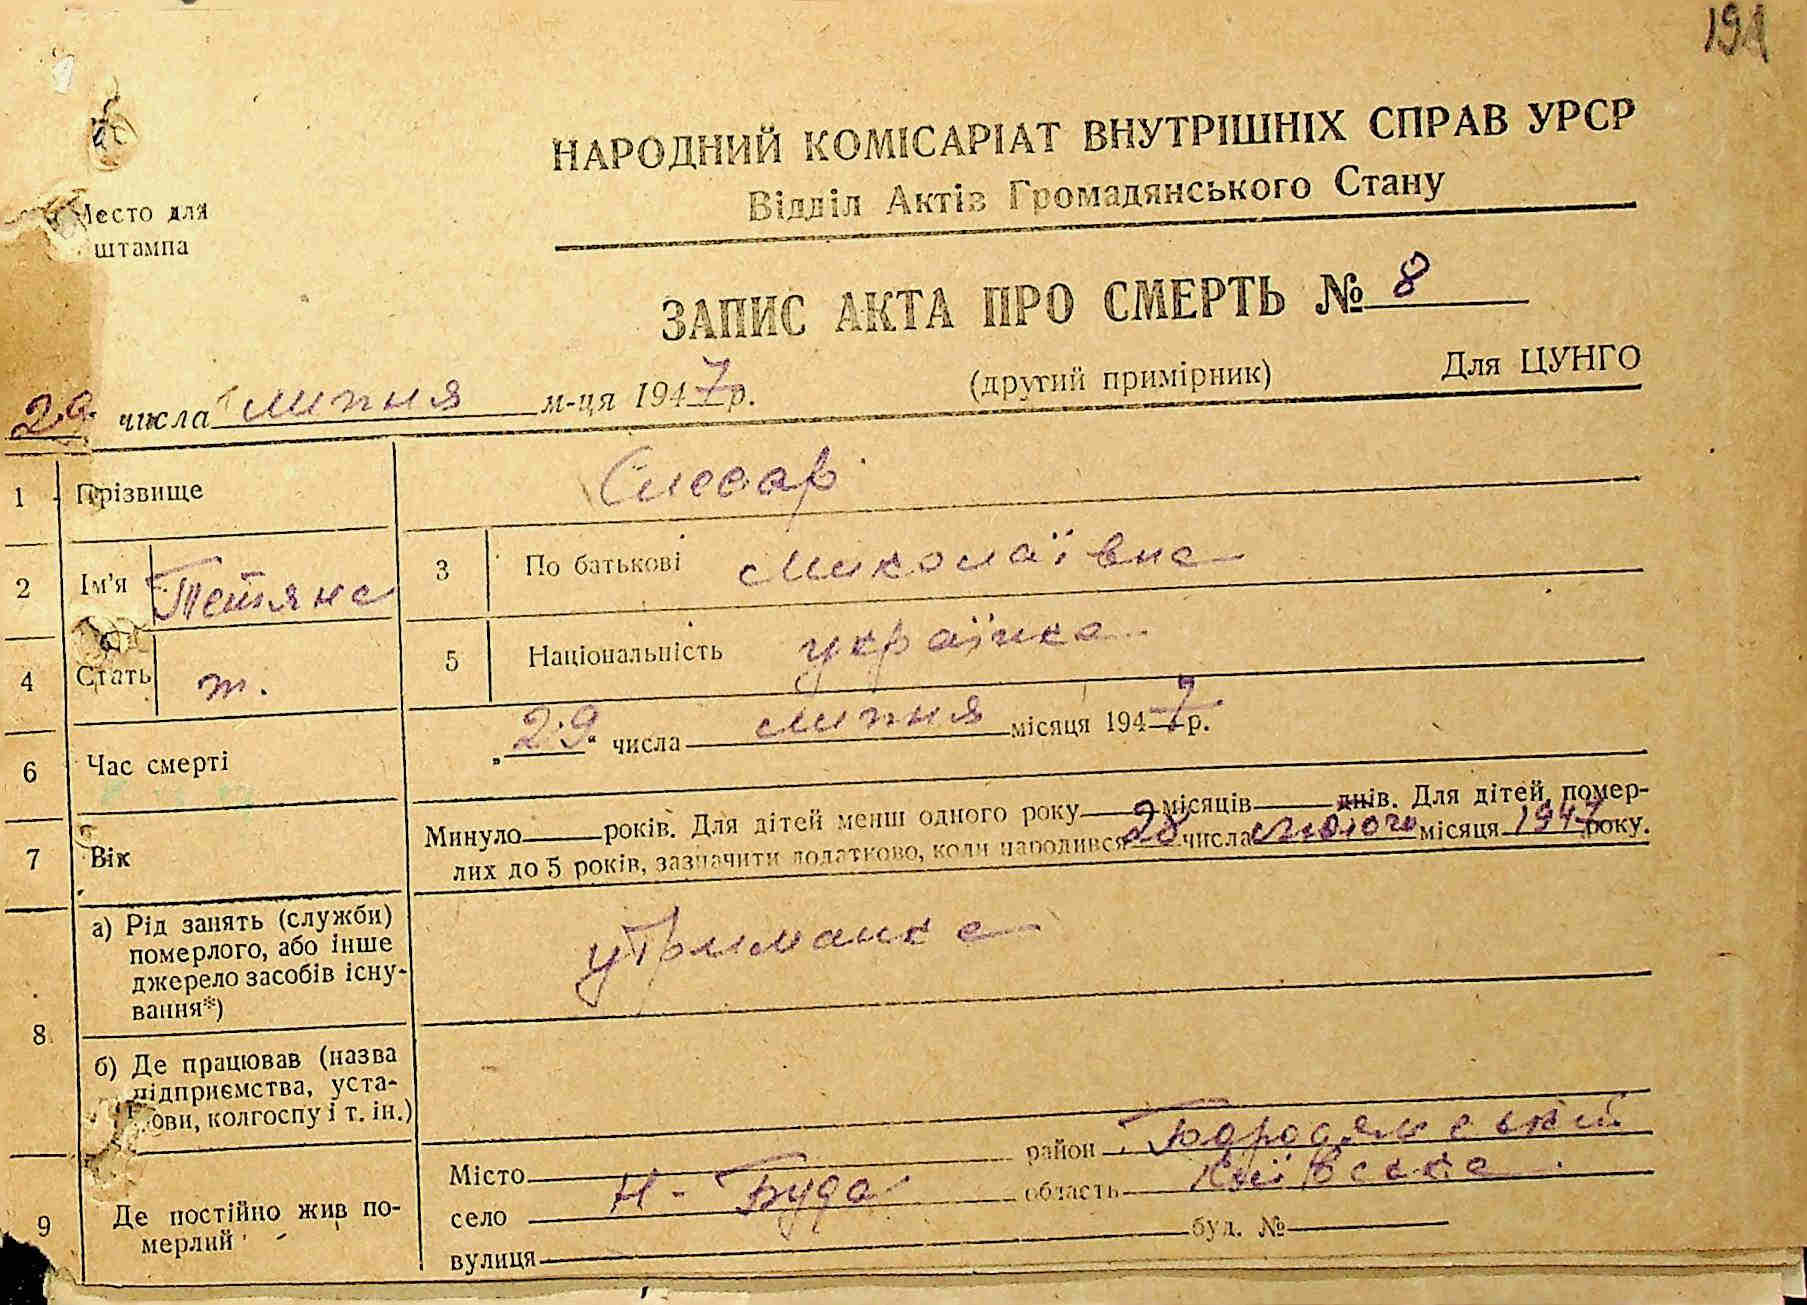 191
НАРОДНИЙ КОМІСАРІАТ ВНУТРІШНІХ СПРАВ УРСР
Відділ Актів Громадянського Стану
Место для
штампа
ЗАПИС АКТА ПРО СМЕРТЬ № 8
29 числа липня м-ця 1947 р. (другий примірник) Для ЦУНГО
1 Прізвище Слесар
2 Ім'я Тетяна 3 По батькові Миколаївна
4 Стать ж. 5 Національність українка
6 Час смерті „29“ числа липня місяця 1947 р.
7 Вік Минуло років. Для дітей менш одного року місяців днів. Для дітей, помер-
лих до 5 років, зазначити додатково, коли народився 28 числа лютого місяця 1947 року.
8 а) Рід занять (служби)
померлого, або інше
джерело засобів існу-
вання*) утриманка
б) Де працював (назва
підприємства, уста-
нови, колгоспу і т. ін.)
9 Де постійно жив по-
мерлий
Місто район Бородянський
село Н-Буда область Київська
вулиця буд. №